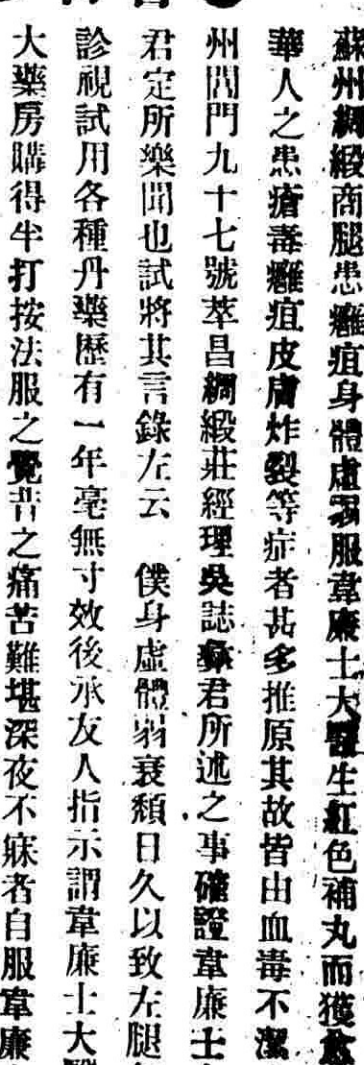 蘇州綢緞商腿患癰疽身體虛弱服韋廉士大醫生紅色補丸而獲愈
華人之患瘡毒癰疽皮膚炸裂等症者甚多推原其故皆由血毒不潔
州閶門九十七號萃昌綢緞莊經理吳誌彝君所述之事確證韋廉士
君定所樂聞也試將其言錄左云 僕身虛體弱衰頹日久以致左腿
診視試用各種丹藥歷有一年毫無寸效後承友人指示謂韋廉士大
大藥房購得半打按法服之覺昔之痛苦難堪深夜不寐者自服韋廉